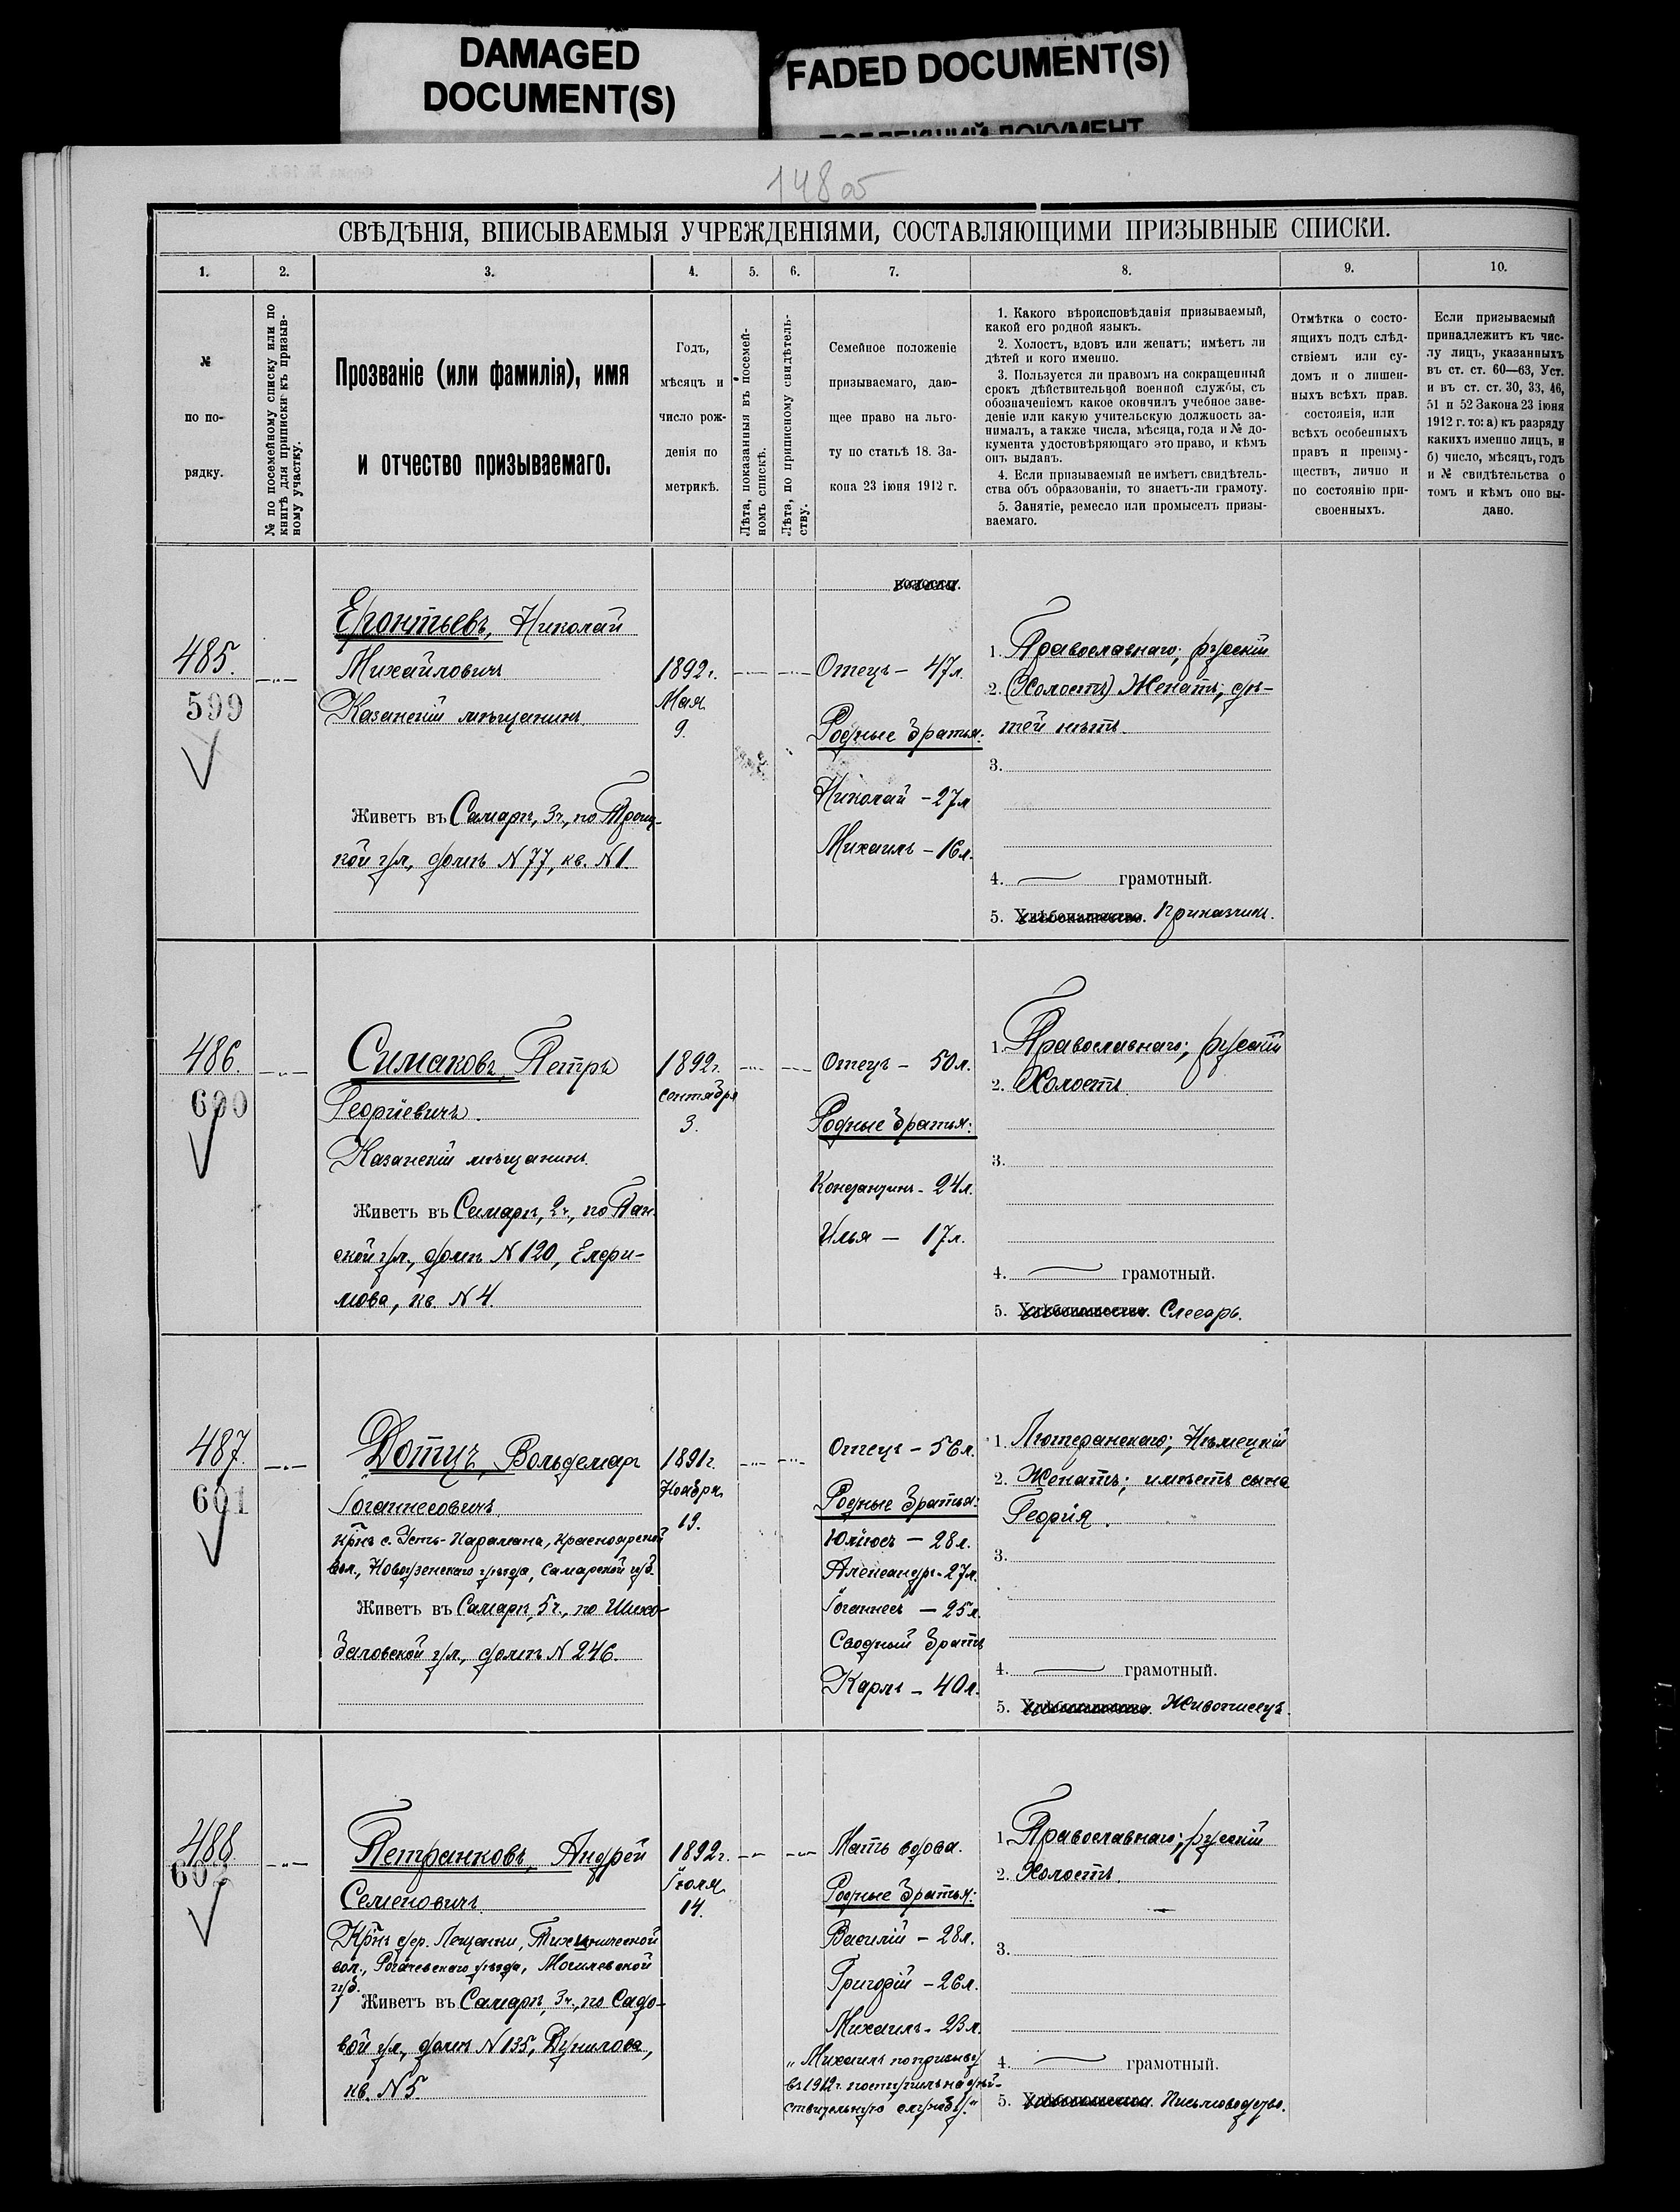 DAMAGED
DOCUMENT(S)
FADED DOCUMENT(S)
148 об
СВѢДѢНІЯ, ВПИСЫВАЕМЫЯ УЧРЕЖДЕНІЯМИ, СОСТАВЛЯЮЩИМИ ПРИЗЫВНЫЕ СПИСКИ.
1.
2.
3.
4.
5.
6.
7.
8.
9.
10.
№
по по-
рядку.
№ по посемейному списку или по
книгѣ для приписки къ призыв-
ному участку.
Прозваніе (или фамилія), имя
и отчество призываемаго.
Годъ,
мѣсяцъ и
число рож-
денія по
метрикѣ.
Лѣта, показанныя въ посемей-
номъ спискѣ.
Лѣта, по приписному свидѣтель-
ству.
Семейное положеніе
призываемаго, даю-
щее право на льго-
ту по статьѣ 18. За-
кона 23 іюня 1912 г.
1. Какого вѣроисповѣданія призываемый,
какой его родной языкъ.
2. Холостъ, вдовъ или женатъ; имѣетъ ли
дѣтей и кого именно.
3. Пользуется ли правомъ на сокращенный
срокъ дѣйствительной военной службы, съ
обозначеніемъ какое окончилъ учебное заве-
деніе или какую учительскую должность за-
нималъ, а также числа, мѣсяца, года и № до-
кумента удостовѣряющаго это право, и кѣмъ
онъ выданъ.
4. Если призываемый не имѣетъ свидѣтель-
ства объ образованіи, то знаетъ-ли грамоту.
5. Занятіе, ремесло или промыселъ призы-
ваемаго.
Отмѣтка о состо-
ящихъ подъ слѣд-
ствіемъ или су-
домъ и о лишен-
ныхъ всѣхъ прав.
состоянія, или
всѣхъ особенныхъ
правъ и преиму-
ществъ, лично и
по состоянію при-
своенныхъ.
Если призываемый
принадлежитъ къ чис-
лу лицъ, указанныхъ
въ ст. ст. 60—63, Уст.
и въ ст. ст. 30, 33, 46,
51 и 52 Закона 23 іюня
1912 г. то: а) къ разряду
какихъ именно лицъ, и
б) число, мѣсяцъ, годъ
и № свидѣтельства о
томъ и кѣмъ оно вы-
дано.
волости.
485.
599
Ерофтьевъ, Николай
Михайловичъ
Казанскій мѣщанинъ.
Живетъ въ Самарѣ, 3ч., по Троиц-
кой ул., домъ N 77, кв. N 1.
1892г.
Мая
9.
Отецъ — 47л.
Родные братья:
Николай — 27л
Михаилъ — 16л.
1. Православнаго; русскій
2. (Холостъ) Женатъ; дѣ-
тей нѣтъ.
3.
4. грамотный.
5. Хлѣбопашество. Приказчикъ.
486.
600
Симаковъ, Петръ
Георгіевичъ.
Казанскій мѣщанинъ.
Живетъ въ Самарѣ, 2ч., по Пан-
ской ул., домъ N 120, Елфи-
мова, кв. N 4.
1892г.
сентября
3.
Отецъ — 50л.
Родные братья:
Константинъ - 24л.
Илья — 17л.
1. Православнаго; русскій
2. Холостъ
3.
4. грамотный.
5. Хлѣбопашество. Слесарь.
487.
601
Дотцъ, Вольдемаръ
Іоганнесовичъ.
Крнъ с. Усть-Карамана, Красноярской
вол., Новоузенскаго уѣзда, Самарской губ.
Живетъ въ Самарѣ, 5ч., по Шихо-
баловской ул., домъ N 246.
1891г.
Ноября
19.
Отецъ — 56л.
Родные братья:
Юліюсъ — 28л.
Александръ - 27л.
Іоганнесъ — 25л.
Сводный братъ
Карлъ — 40л.
1. Лютеранскаго; Нѣмецкій
2. Женатъ; имѣетъ сына
Георгія.
3.
4. грамотный.
5. Хлѣбопашество. Живописецъ.
488.
602
Петранковъ, Андрей
Семеновичъ.
Крнъ дер. Лещенки, Тихиничской
вол., Рогачевскаго уѣзда, Могилевской
губ.
Живетъ въ Самарѣ, 3ч., по Садо-
вой ул., домъ N 135, Дунилова,
кв. N 5.
1892г.
Іюля
14.
Мать вдова.
Родные братья:
Василій — 28л.
Григорій — 26л.
Михаилъ - 23л.
„Михаилъ по призыву
въ 1912г. поступилъ на дѣй-
ствительную службу.“
1. Православнаго; русскій
2. Холостъ.
3.
4. грамотный.
5. Хлѣбопашество. Письмоводство.